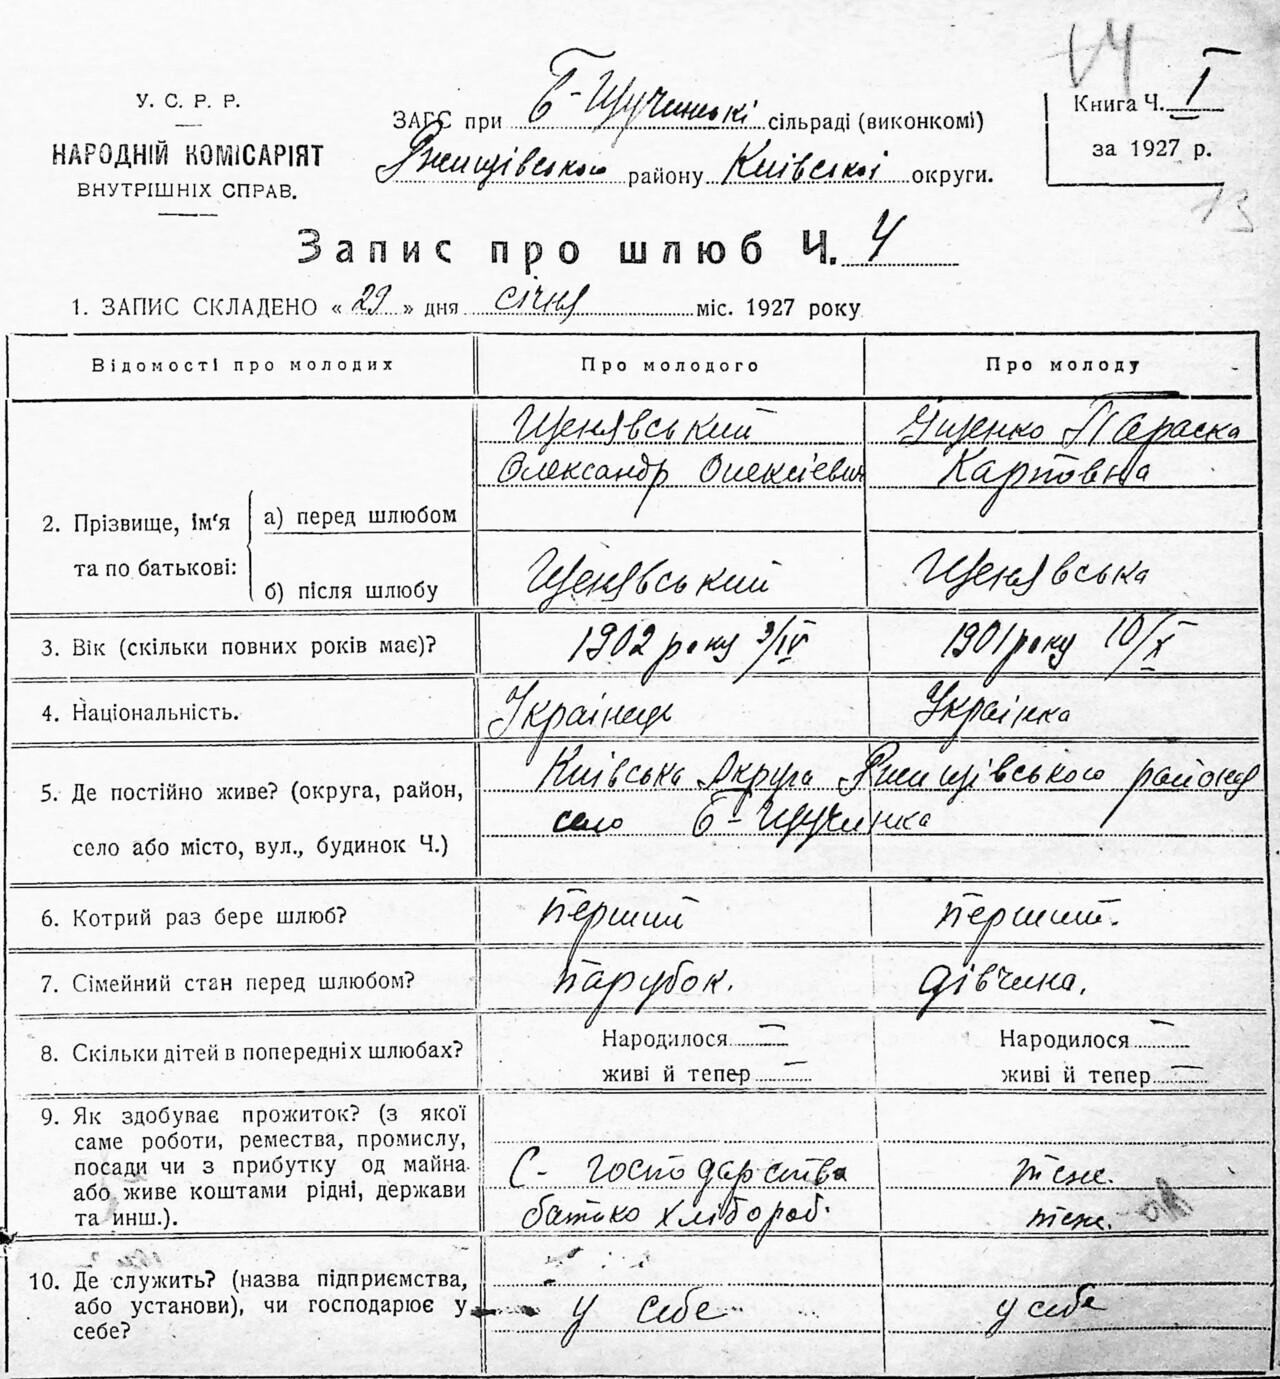 У. С. Р. Р.
НАРОДНІЙ КОМІСАРІЯТ
ВНУТРІШНІХ СПРАВ.
ЗАГС при Б-Щучинські сільраді (виконкомі)
Ржищівського району Київської округи.
Книга Ч. I
за 1927 р.
13
Запис про шлюб Ч. 4
1. ЗАПИС СКЛАДЕНО « 29 » дня січня міс. 1927 року
Відомості про молодих Про молодого Про молоду
Щенявський Іщенко Параска
Олександр Олексієвич Карповна
2. Прізвище, ім'я та по батькові:
а) перед шлюбом
б) після шлюбу Щенявський Щенявська
3. Вік (скільки повних років має)? 1902 року 9/IV 1901 року 10/X
4. Національність. Українець Українка
5. Де постійно живе? (округа, район, Київська Округа Ржищівського району
село або місто, вул., будинок Ч.) село Б-Щучинка
6. Котрий раз бере шлюб? Перший Перший.
7. Сімейний стан перед шлюбом? парубок. дівчина.
8. Скільки дітей в попередніх шлюбах? Народилося — Народилося —
живі й тепер — живі й тепер —
9. Як здобуває прожиток? (з якої
саме роботи, ремества, промислу,
посади чи з прибутку од майна
або живе коштами рідні, держави
та инш.).
С-господарства теж.
батько хлібороб. теж.
10. Де служить? (назва підприємства,
або установи), чи господарює у
себе?
у себе у себе